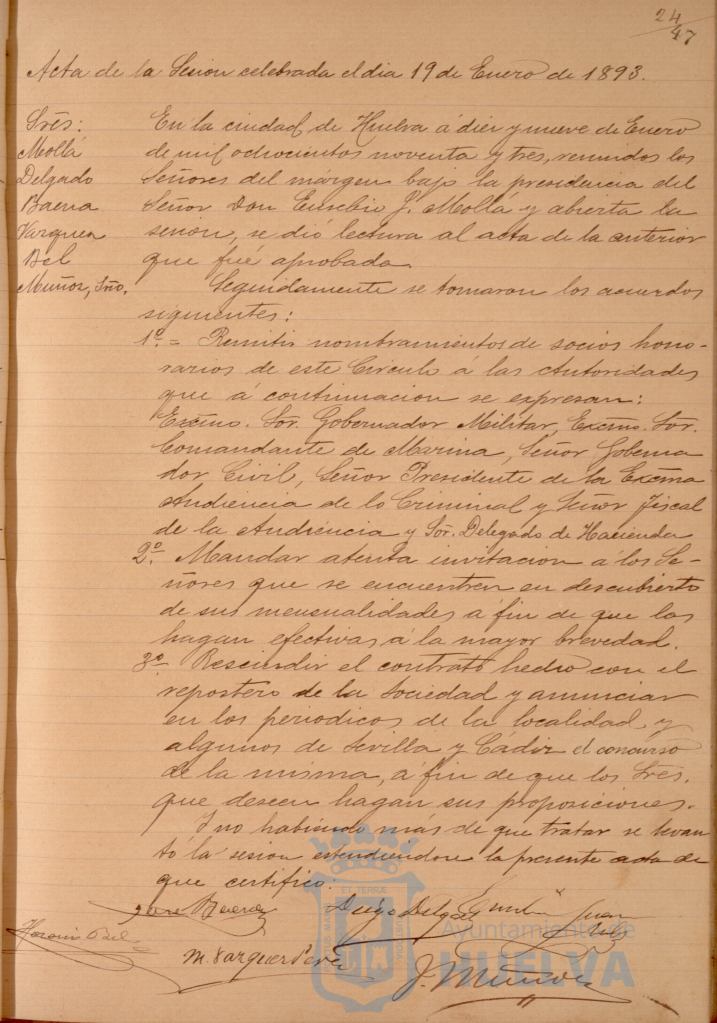 24/47
Acta de la Sesion celebrada el dia 19 de Enero de 1893.
Srēs:
Mollá
Delgado
Baena
Vazquez
Bel
Muñoz, Srio.
En la ciudad de Huelva á diez y nueve de Enero
de mil ochocientos noventa y tres, reunidos los
Señores del márgen bajo la presidencia del
Señor Don Eusebio J. Mollá y abierta la
sesion, se dió lectura al acta de la anterior
que fué aprobada.
Seguidamente se tomaron los acuerdos
siguientes:
1º = Remitir nombramientos de socios hono-
rarios de este Circulo á las Autoridades
que á continuacion se expresan:
Excmo. Sor. Gobernador Militar, Excmo. Sor.
Comandante de Marina, Señor Goberna
dor Civil, Señor Presidente de la Excma
Audiencia de lo Criminal y Señor Fiscal
de la Audiencia y Sor. Delegado de Hacienda
2º. Mandar atenta invitacion á los Se-
ñores que se encuentren en descubierto
de sus mensualidades a fin de que las
hagan efectivas á la mayor brevedad.
3º. Rescindir el contrato hecho con el
repostero de la Sociedad y anunciar
en los periodicos de la localidad y
algunos de Sevilla y Cádiz el concurso
de la misma, á fin de que los Srēs.
que deseen hagan sus proposiciones.
Y no habiendo más de que tratar se levan
tó la sesion estendiendose la presente acta de
que certifico.
José Baena
Diego Delgado
Horacio Bel
M. Vazquez
J. Muñoz
Ayuntamiento de
HUELVA